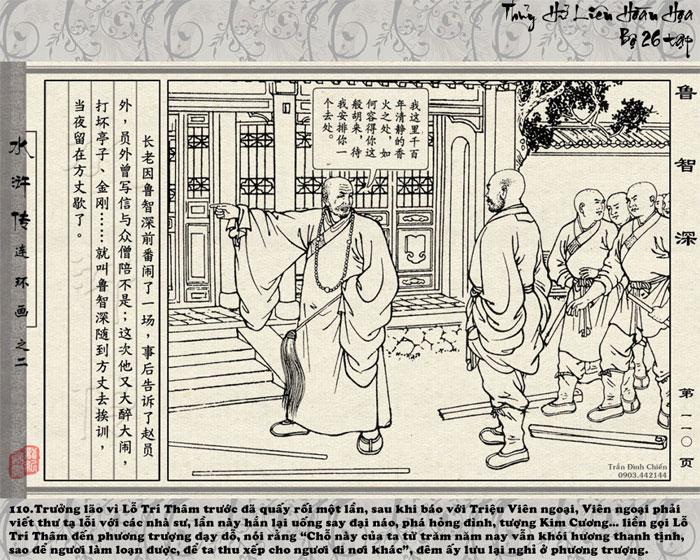 Thủy Hử Liên Hoàn Họa
Bộ 26 tập
水浒传连环画之二
长老因鲁智深前番闹了一场，事后告诉了赵员
外，员外曾写信与众僧陪不是；这次他又大醉大闹，
打坏亭子、金刚……就叫鲁智深随到方丈去挨训，
当夜留在方丈歇了。
我这里千百
年清静的香
火之处，如
何容得你这
般胡来，待
我安排你一
个去处。
鲁智深
第一一〇页
Trần Đình Chiến
0903.442144
110.Trưởng lão vì Lỗ Trí Thâm trước đã quấy rối một lần, sau khi báo với Triệu Viên ngoại, Viên ngoại phải
viết thư tạ lỗi với các nhà sư, lần này hắn lại uống say đại náo, phá hỏng đình, tượng Kim Cương... liền gọi Lỗ
Trí Thâm đến phương trượng dạy dỗ, nói rằng “Chỗ này của ta từ trăm năm nay vẫn khói hương thanh tịnh,
sao để ngươi làm loạn được, để ta thu xếp cho ngươi đi nơi khác”, đêm ấy lưu lại nghỉ ở phương trượng.